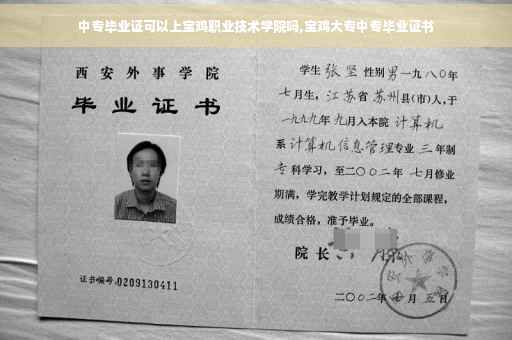 中专毕业证可以上宝鸡职业技术学院吗,宝鸡大专中专毕业证书
西安外事学院
毕业证书
证书编号:0209130411
学生张坚性别男一九八〇年
七月生,江苏省苏州县(市)人,于
一九九九年九月入本院计算机
系计算机信息管理专业三年制
专科学习,至二〇〇二年七月修业
期满,学完教学计划规定的全部课程,
成绩合格,准予毕业。
院长
二〇〇二年 月五日